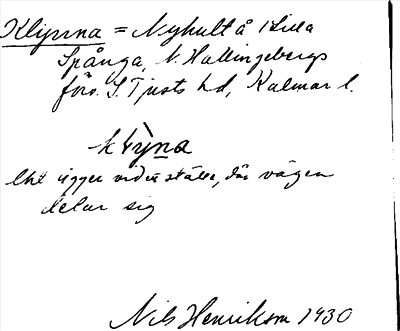 Klynna = Nyhult å Lilla
Spånga, N. Hallingebergs
förs. S. Tjusts hd, Kalmar l.
klỳna
Det ligger vid ett ställe, där vägen
delar sig
Nils Henrikson 1930